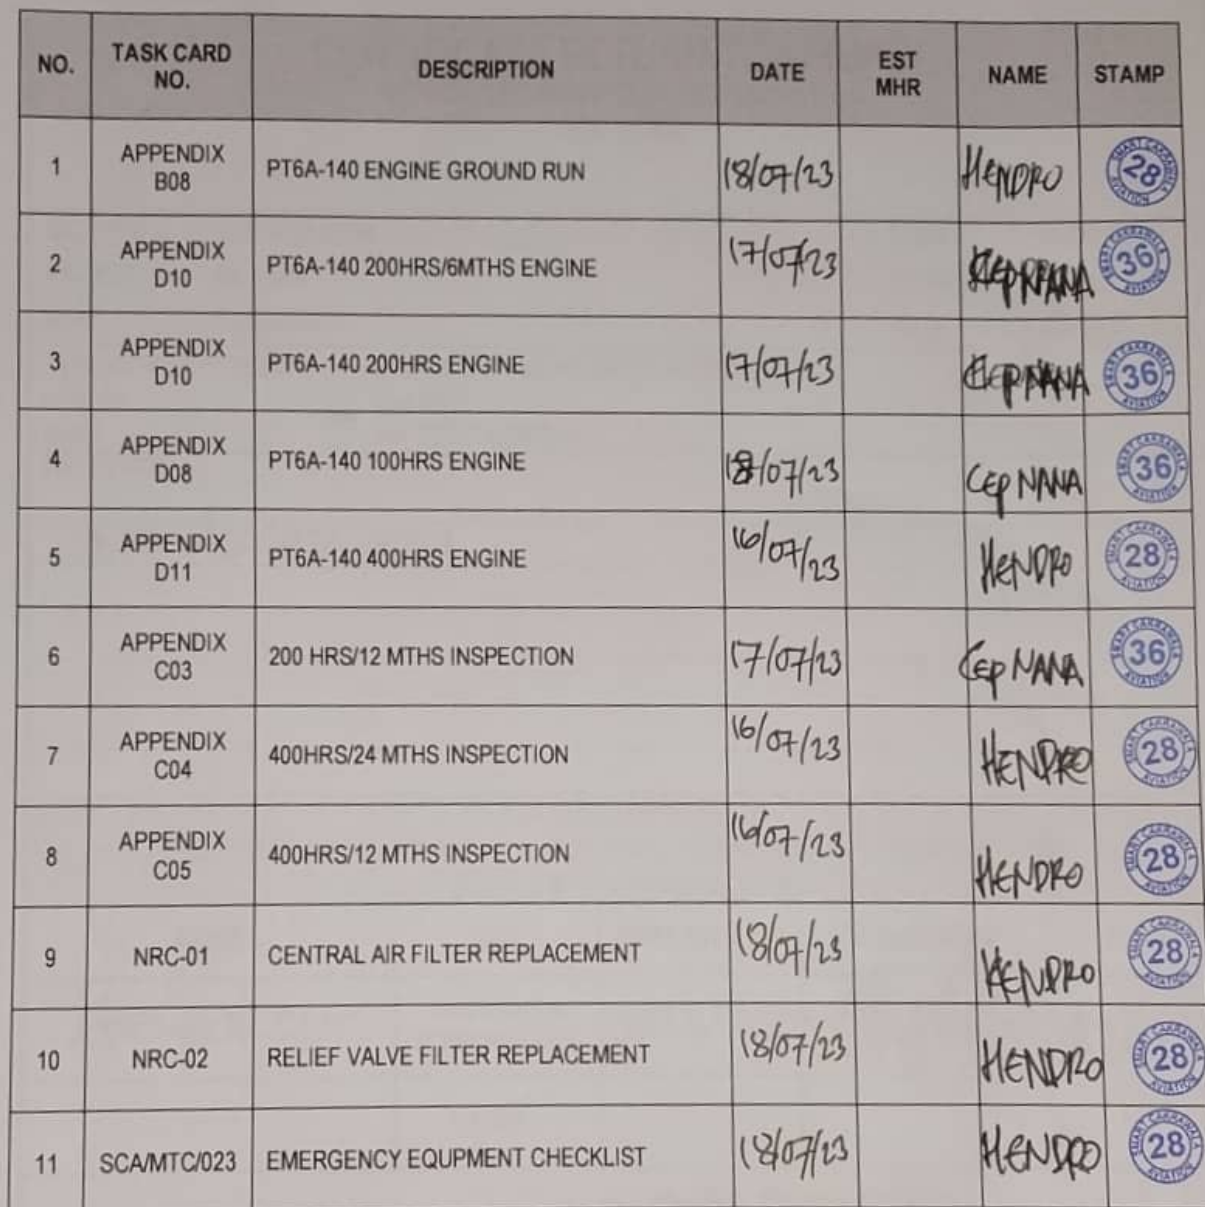 NO. TASK CARD NO. DESCRIPTION DATE EST MHR NAME STAMP
1 APPENDIX B08 PT6A-140 ENGINE GROUND RUN 18/07/23 HENDRO SMART CAKRAWALA 28 AVIATION
2 APPENDIX D10 PT6A-140 200HRS/6MTHS ENGINE 17/07/23 SMART CAKRAWALA 36 AVIATION
3 APPENDIX D10 PT6A-140 200HRS ENGINE 17/07/23 CEP NANA SMART CAKRAWALA 36 AVIATION
4 APPENDIX D08 PT6A-140 100HRS ENGINE 18/07/23 CEP NANA SMART CAKRAWALA 36 AVIATION
5 APPENDIX D11 PT6A-140 400HRS ENGINE 16/07/23 HENDRO SMART CAKRAWALA 28 AVIATION
6 APPENDIX C03 200 HRS/12 MTHS INSPECTION 17/07/23 CEP NANA SMART CAKRAWALA 36 AVIATION
7 APPENDIX C04 400HRS/24 MTHS INSPECTION 16/07/23 HENDRO SMART CAKRAWALA 28 AVIATION
8 APPENDIX C05 400HRS/12 MTHS INSPECTION 16/07/23 HENDRO SMART CAKRAWALA 28 AVIATION
9 NRC-01 CENTRAL AIR FILTER REPLACEMENT 18/07/23 HENDRO SMART CAKRAWALA 28 AVIATION
10 NRC-02 RELIEF VALVE FILTER REPLACEMENT 18/07/23 HENDRO SMART CAKRAWALA 28 AVIATION
11 SCA/MTC/023 EMERGENCY EQUPMENT CHECKLIST 18/07/23 HENDRO SMART CAKRAWALA 28 AVIATION